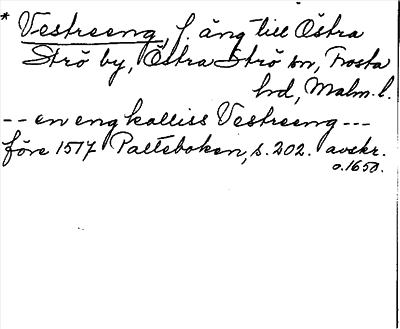 * Vestreeng, f. äng till Östra
Strö by, Östra Strö sn, Frosta
hrd, Malm. l.
-- en eng kalliss Vestreeng ---
före 1517 Palteboken, s. 202. avskr.
o. 1650.